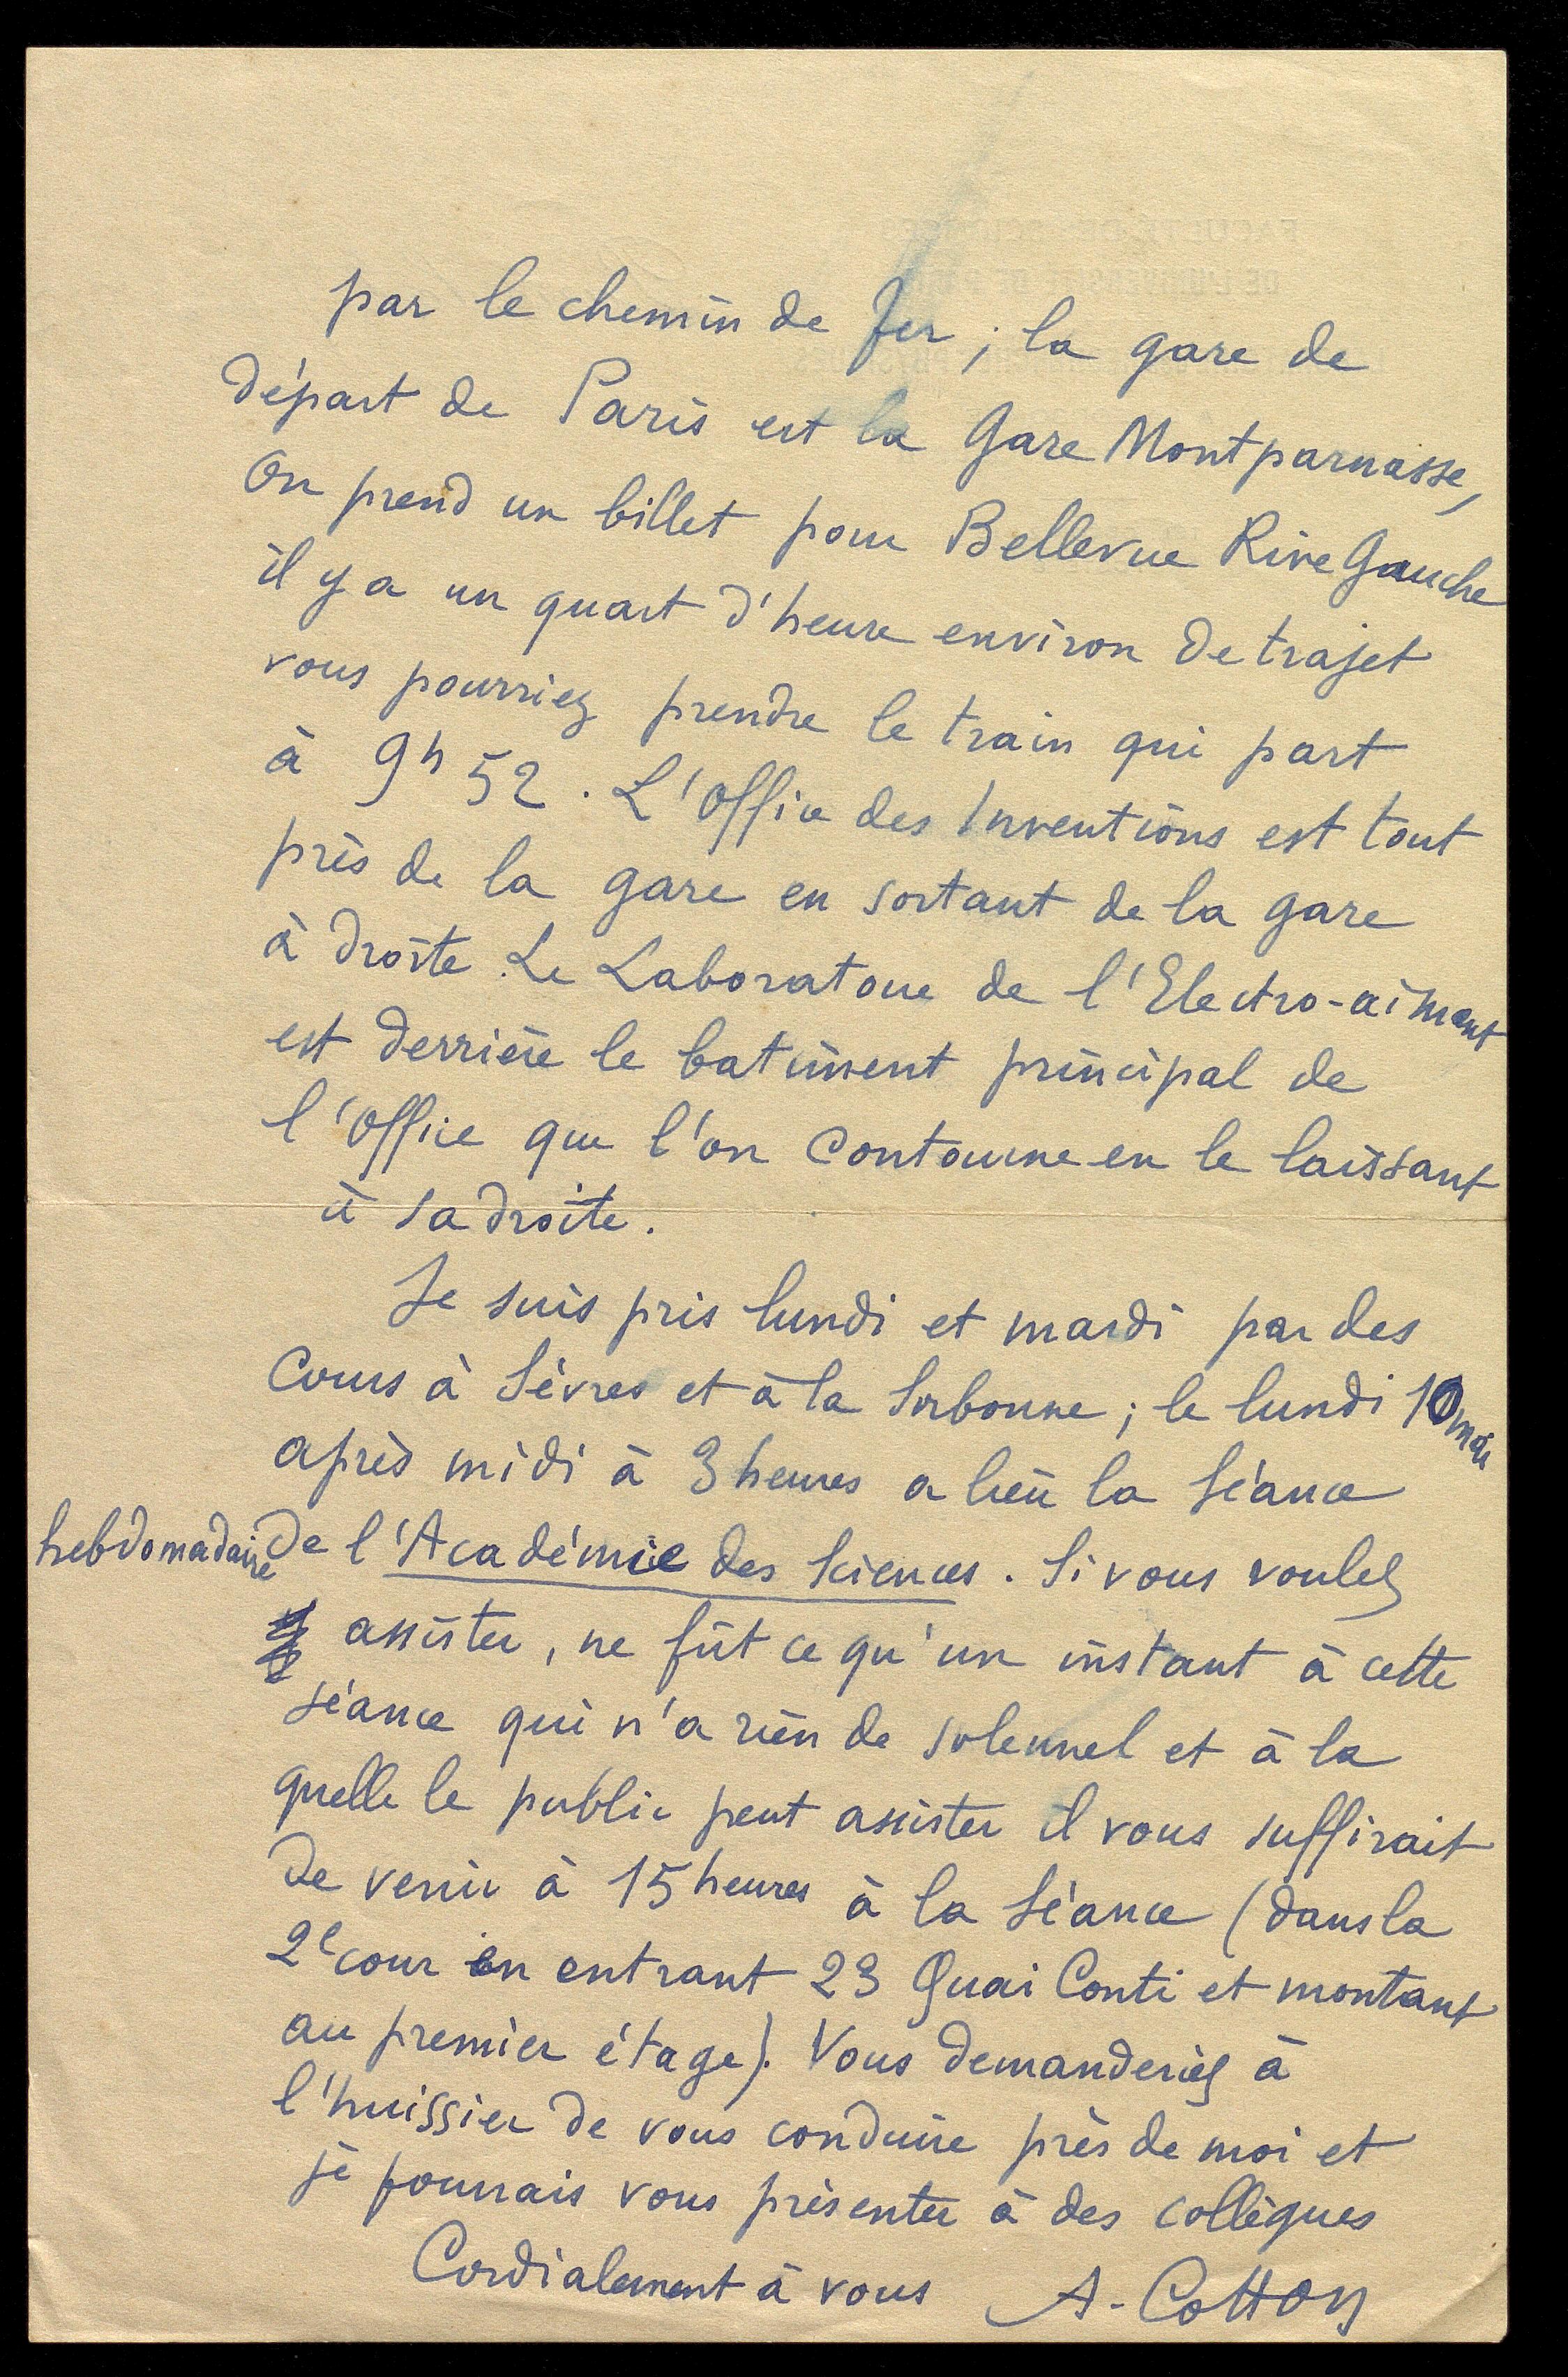 par le chemin de fer ; la gare de
départ de Paris est la Gare Montparnasse,
On prend un billet pour Bellevue Rive Gauche
il y a un quart d'heure environ de trajet
vous pourriez prendre le train qui part
à 9h 52. L'Office des Inventions est tout
près de la gare en sortant de la gare
à droite. Le Laboratoire de l'Electro-aimant
est derrière le batiment principal de
l'Office que l'on contourne en le laissant
à sa droite.
Je suis pris lundi et mardi par des
Cours à Sèvres et à la Sorbonne ; le lundi 10 mai
après midi à 3 heures a lieu la Séance
hebdomadaire de l'Académie des Sciences. Si vous voulez
assister, ne fût ce qu'un instant à cette
séance qui n'a rien de solennel et à la
quelle le public peut assister il vous suffirait
de venir à 15 heures à la Séance (dans la
2e cour en entrant 23 Quai Conti et montant
au premier étage). Vous demanderiez à
l'huissier de vous conduire près de moi et
je pourrais vous présenter à des collègues
Cordialement à vous A. Cotton